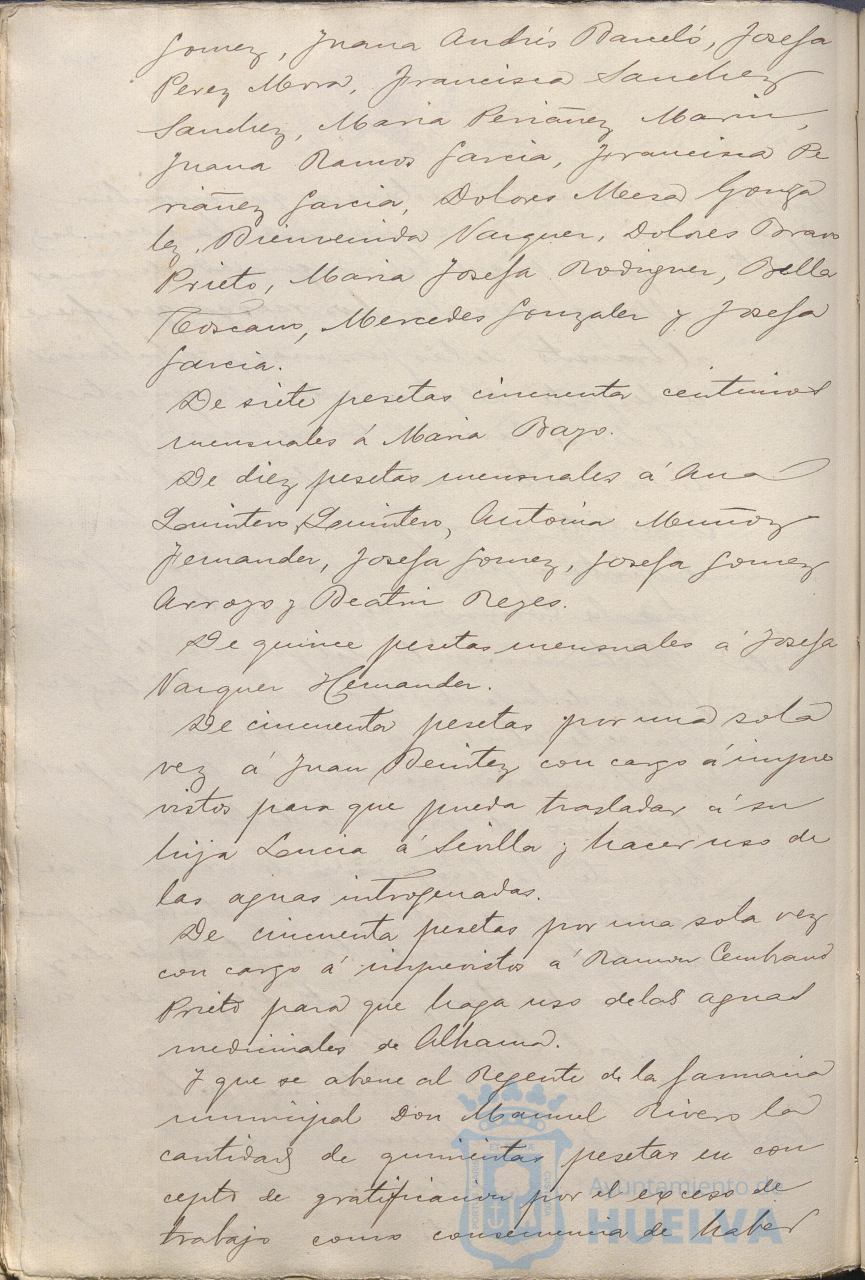 Gomez, Juana Andrés Barceló, Josefa
Perez Mora, Francisca Sanchez
Sanchez, Maria Periáñez Marin,
Juana Ramos Garcia, Francisca Pe
riáñez Garcia, Dolores Mesa Gonza
lez, Bienvenida Vazquez, Dolores Bravo
Prieto, Maria Josefa Rodriguez, Bella
Toscano, Mercedes Gonzalez y Josefa
Garcia.
De siete pesetas cincuenta centimos
mensuales á Maria Bazo.
De diez pesetas mensuales á Ana
Quintero Quintero, Antonia Muñoz
Fernandez, Josefa Gomez, Josefa Gomez
Arroyo y Beatriz Reyes.
De quince pesetas mensuales á Josefa
Vazquez Hernandez.
De cincuenta pesetas por una sola
vez á Juan Benitez con cargo á impre
vistos para que pueda trasladar á su
hija Lucia á Sevilla y hacer uso de
las aguas
De cincuenta pesetas por una sola vez
con cargo á imprevistos á Ramon Cembrano
Prieto para que haga uso de las aguas
medicinales de Alhama.
Y que se abone al Regente de la farmacia
municipal Don Manuel Rivero la
cantidad de quinientas pesetas en con
cepto de gratificacion por el exceso de
trabajo como consecuencia de haber
Ayuntamiento de
HUELVA